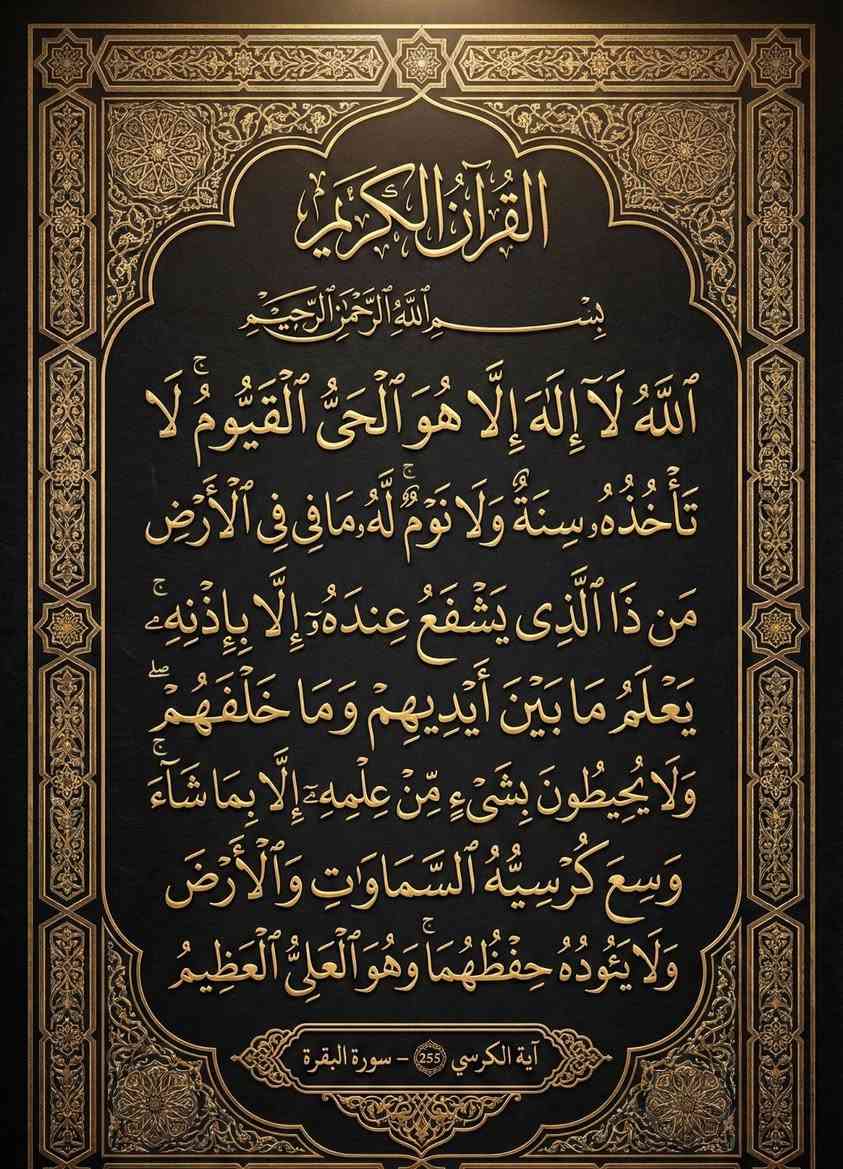 القُرآنُ الكَرِيَمِ
بِسْمِ ٱللَّهِ ٱلرَّحْمَٰنِ ٱلرَّحِيمِ
ٱللَّهُ لَآ إِلَٰهَ إِلَّا هُوَ ٱلْحَىُّ ٱلْقَيُّومُ ۚ لَا
تَأْخُذُهُۥ سِنَةٌ وَلَا نَوْمٌ ۚ لَّهُۥ مَا فِى فِى ٱلْأَرْضِ
مَن ذَا ٱلَّذِى يَشْفَعُ عِندَهُۥٓ إِلَّا بِإِذْنِهِۦ ۚ
يَعْلَمُ مَا بَيْنَ أَيْدِيهِمْ وَمَا خَلْفَهُمْ ۖ
وَلَا يُحِيطُونَ بِشَىْءٍ مِّنْ عِلْمِهِۦٓ إِلَّا بِمَا شَآءَ ۚ
وَسِعَ كُرْسِيُّهُ ٱلسَّمَاوَٰتِ وَٱلْأَرْضَ
وَلَا يَئُودُهُ حِفْظُهُمَا ۚ وَهُوَ ٱلْعَلِىُّ ٱلْعَظِيمُ
آية الكرسي 255 – سورة البقرة